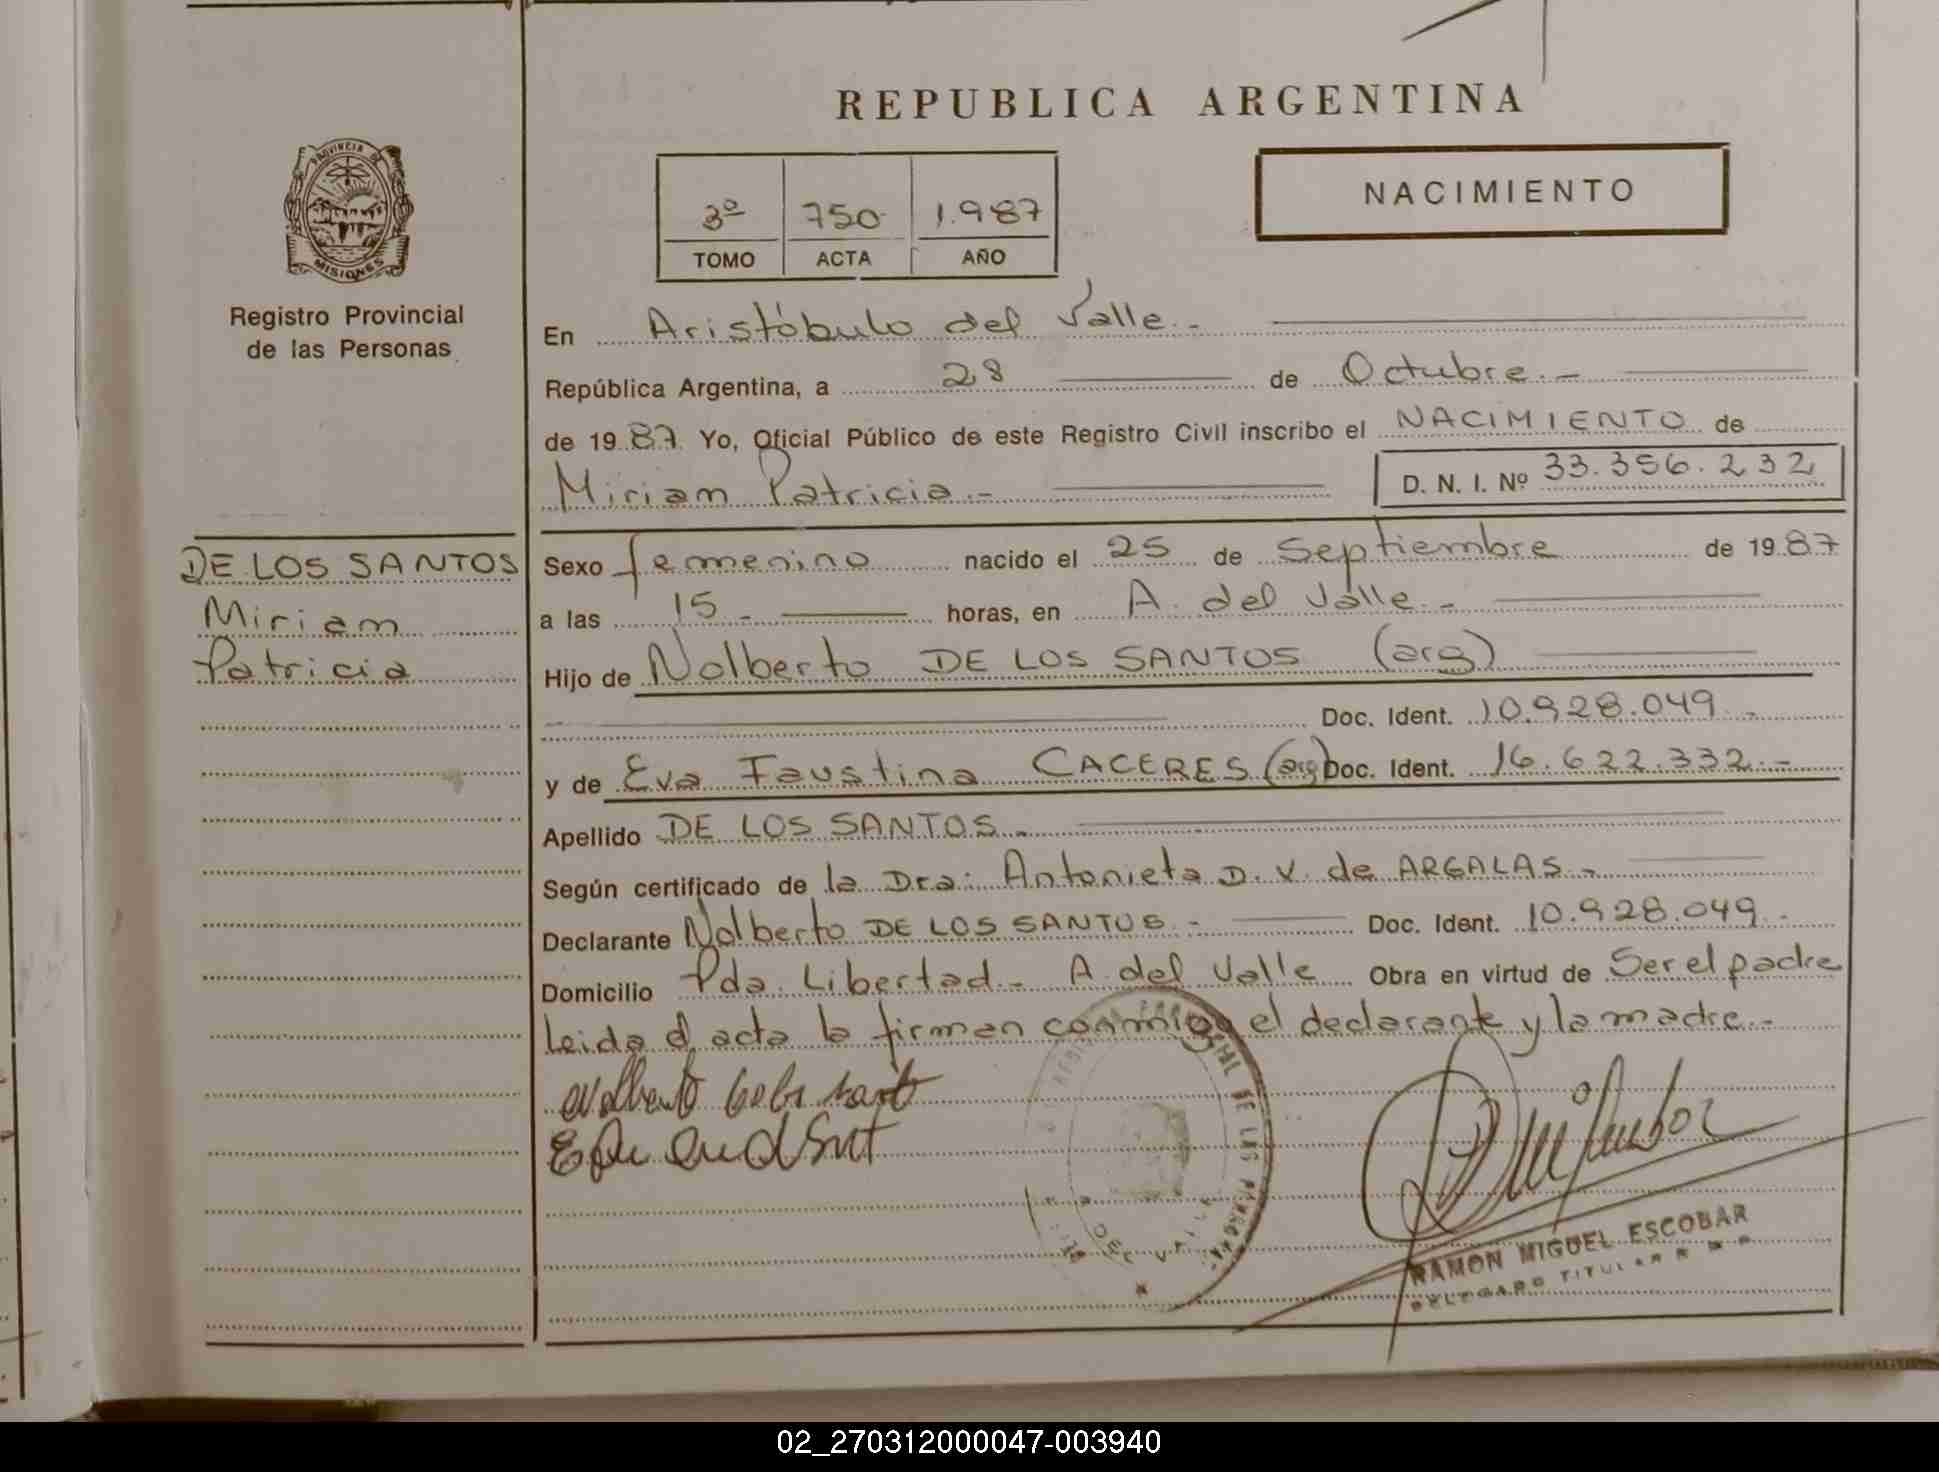 REPUBLICA ARGENTINA
PROVINCIA DE
MISIONES
Registro Provincial
de las Personas
3º 750 1.987
TOMO ACTA AÑO
NACIMIENTO
En Aristóbulo del Valle.-
República Argentina, a 28 de Octubre.-
de 19 87 Yo, Oficial Público de este Registro Civil inscribo el NACIMIENTO de
Miriam Patricia.- D. N. I. Nº 33.356.232
DE LOS SANTOS
Miriam
Patricia
Sexo femenino nacido el 25 de Septiembre de 19 87
a las 15.- horas, en A. del Valle.-
Hijo de Nolberto DE LOS SANTOS (arg)
Doc. Ident. 10.928.049.-
y de Eva Faustina CACERES (arg) Doc. Ident. 16.622.332.-
Apellido DE LOS SANTOS.-
Según certificado de la Dra: Antonieta D. V. de ARGALAS.-
Declarante Nolberto DE LOS SANTOS.- Doc. Ident. 10.928.049.-
Domicilio Pda. Libertad.- A. del Valle Obra en virtud de Ser el padre
leida el acta la firman conmigo el declarante y la madre.-
DE LAS PERSONAS
DEL VALLE
RAMON MIGUEL ESCOBAR
TITULAR
02_270312000047-003940